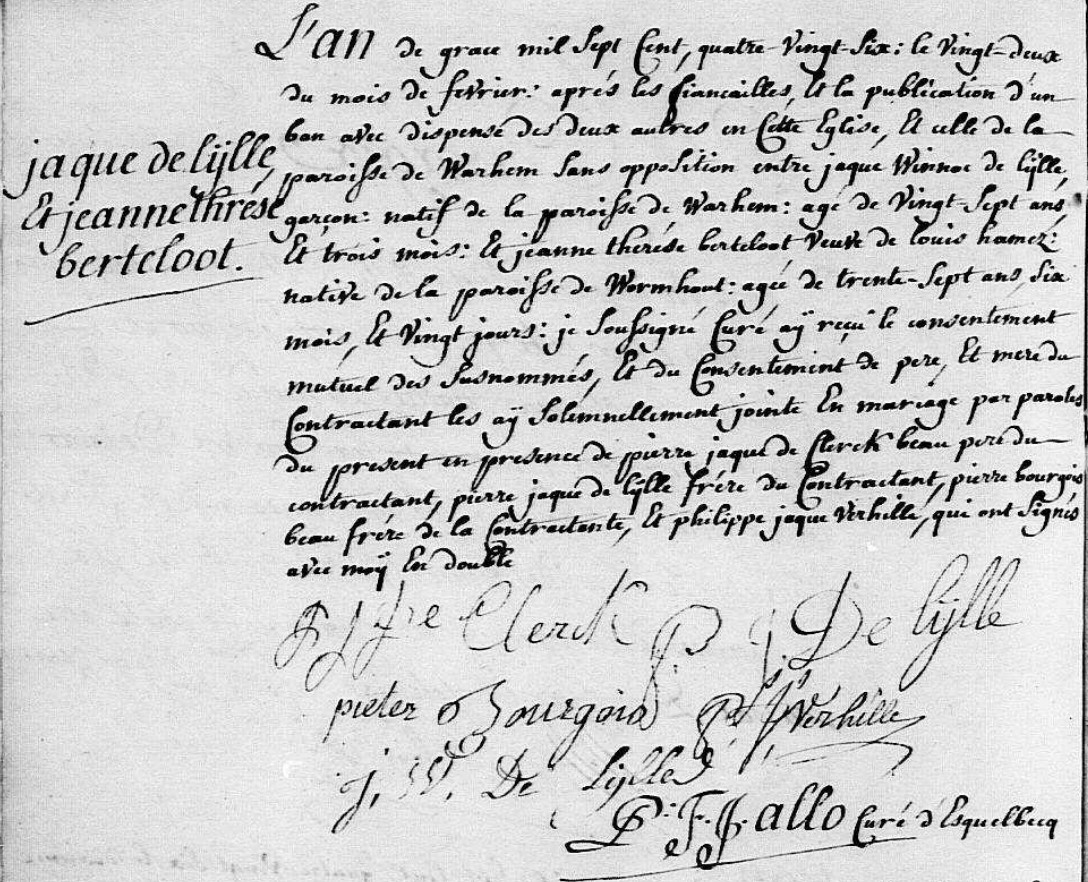 jaque de lÿlle,
Et jeanne thrése
berteloot.
L'an de grace mil Sept Cent, quatre-Vingt-Six: le Vingt-deux
du mois de fevrier: aprés les fiancailles, Et la publication d'un
ban avec dispense des deux autres en Cette Eglise, Et celle de la
paroisse de Warhem Sans opposition entre jaque Winnoc de lÿlle,
garçon: natif de la paroisse de Warhem: agé de Vingt-Sept ans,
Et trois mois: Et jeanne thérése berteloot Veuve de louis hamez:
native de la paroisse de Wormhout: agée de trente-Sept ans, Six
mois, Et Vingt jours: je Soussigné Curé aÿ reçu le consentement
mutuel des Susnommés, Et du Consentement de pere, Et mere du
Contractant les aÿ Solemnellement jointe En mariage par paroles
du present en presence de pierre jaque de Clerck beau pere du
contractant, pierre jaque de lÿlle frére du Contractant, pierre bourgois
beau frére de la Contractante, Et philippe jaque Verhille, qui ont Signés
avec moÿ En double
P J De Clerck P. j. De lÿlle
pieter Bourgois Ph js Verhille
j. W. De lÿlle
P. F. J. allo Curé d'Esquelbecq